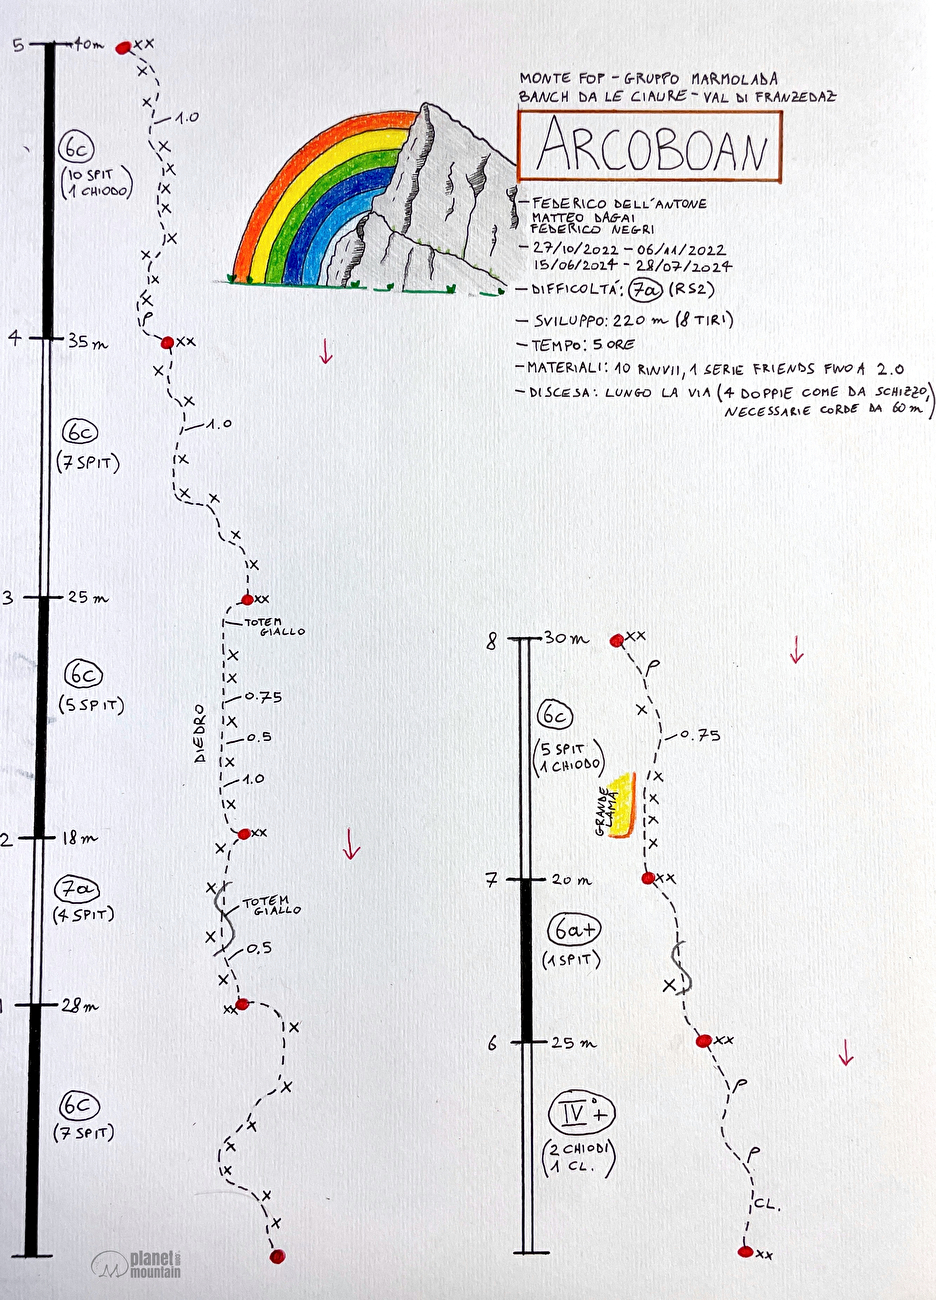 MONTE FOP - GRUPPO MARMOLADA
BANCH DA LE CIAURE - VAL DI FRANZEDAZ
ARCOBOAN
- FEDERICO DELL'ANTONE
MATTEO DAGAI
FEDERICO NEGRI
- 27/10/2022 - 06/11/2022
15/06/2024 - 28/07/2024
- DIFFICOLTÁ: 7a (RS2)
- SVILUPPO: 220 m (8 TIRI)
- TEMPO: 5 ORE
- MATERIALI: 10 RINVII, 1 SERIE FRIENDS FINO A 2.0
- DISCESA: LUNGO LA VIA (4 DOPPIE COME DA SCHIZZO,
NECESSARIE CORDE DA 60 m)
5 40m XX
X
X
1.0
6c
(10 SPIT
1 CHIODO)
X
X
X
X
X
X
X
X
P
4 35 m XX
X
X
1.0
6c
(7 SPIT)
X
X X
X
X
3 25 m XX
TOTEM
GIALLO
X
X
6c
(5 SPIT)
0.75
DIEDRO
X
0.5
X
1.0
X
2 18 m XX
X
7a
(4 SPIT)
X
TOTEM
GIALLO
X
0.5
X
1 28 m XX
X
X
6c
(7 SPIT)
X
X
X
X
X
8 30 m XX
P
X
6c
(5 SPIT
1 CHIODO)
0.75
GRANDE
LAMA
X
X
X
X
7 20 m XX
6a+
(1 SPIT)
X
6 25 m XX
P
IV°+
(2 CHIODI
1 CL.)
P
CL.
XX
planet
mountain
.com